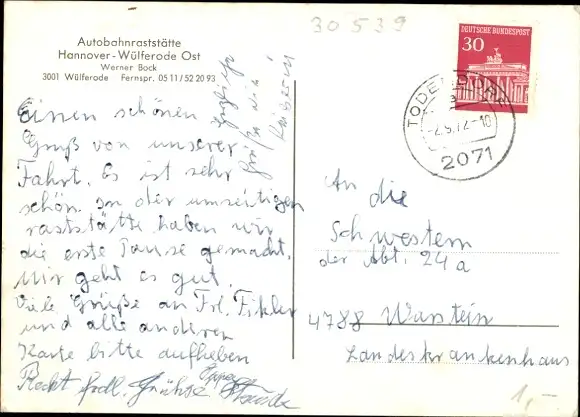 30 539
Autobahnraststätte
Hannover-Wülferode Ost
Werner Bock
3001 Wülferode Fernspr. 05 11/52 20 93
DEUTSCHE BUNDESPOST
30
TODENDORF
-2.5.72-10
2071
Einen schönen
Gruß von unserer
Fahrt. Es ist sehr
schön. In der umseitigen
raststätte haben wir
die erste Pause gemacht.
Mir geht es gut.
Viele Grüße an Frl. Fikler
und alle anderen
Karte bitte aufheben
Recht frdl. Grüße
An die
Schwestern
der Abt. 24a
4788 Warstein
Landeskrankenhaus
1,-